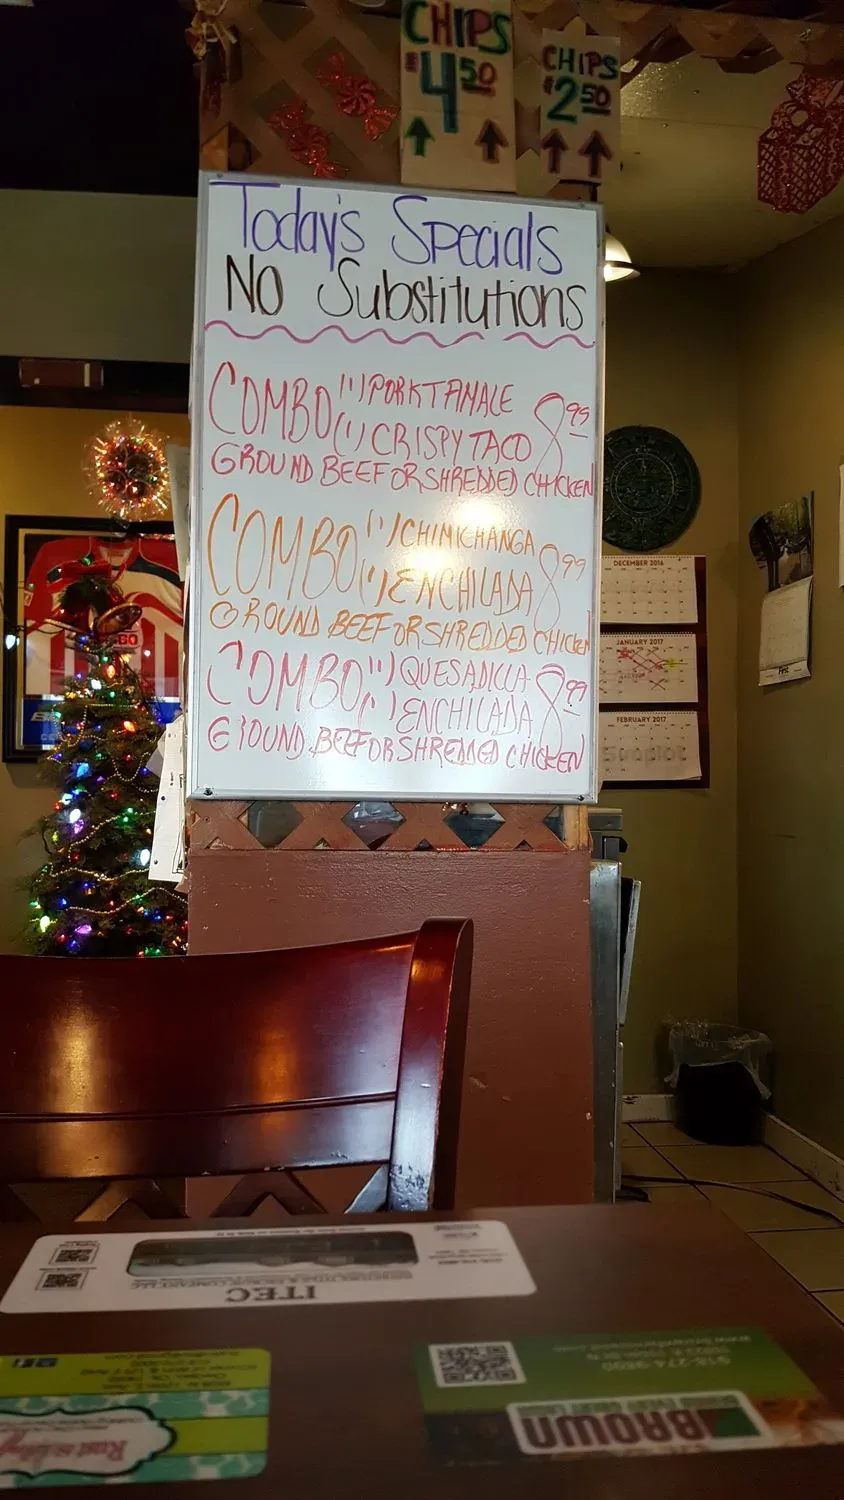 CHIPS
$4.50
CHIPS
$2.50
Today's Specials
NO Substitutions
COMBO (1) PORK TAMALE
(1) CRISPY TACO 8.99
GROUND BEEF OR SHREDDED CHICKEN
COMBO (1) CHIMICHANGA
(1) ENCHILADA 8.99
GROUND BEEF OR SHREDDED CHICKEN
COMBO (1) QUESADILLA
(1) ENCHILADA 8.99
GROUND BEEF OR SHREDDED CHICKEN
DECEMBER 2016
JANUARY 2017
FEBRUARY 2017
ITEC
BROWN